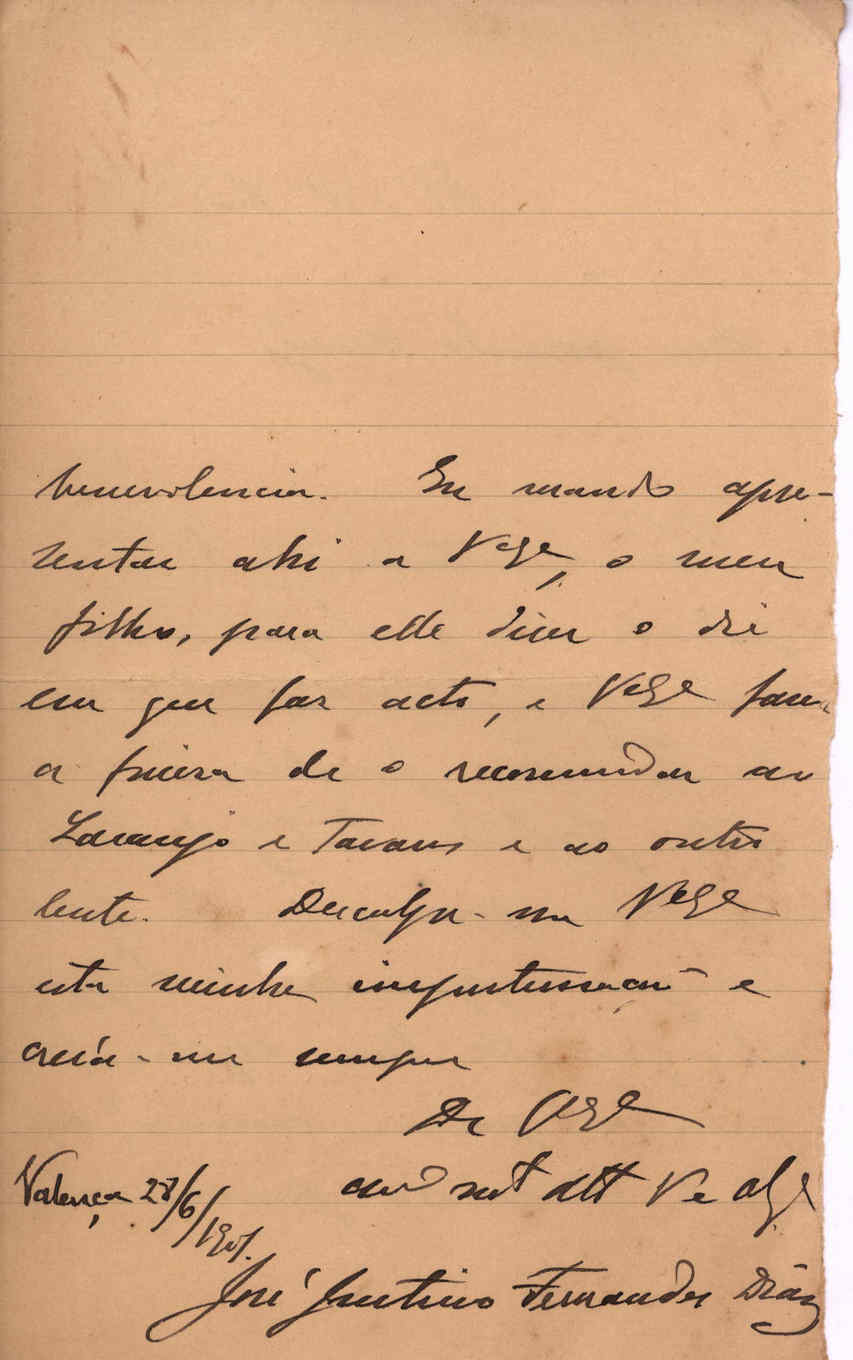 benevolencia. Eu mando apre-
sentar ahi a VExª, o meu
filho, para elle dizer o dia
em que faz acto, e VExª fara
a fineza de o recomendar ao
Laranjo e Tavares e ao outro
lente. Desculpe-me VExª
esta minha importunação e
creia-me sempre
De VExª
Valença 28/6/1901.
José Justino Fernandes Diaz